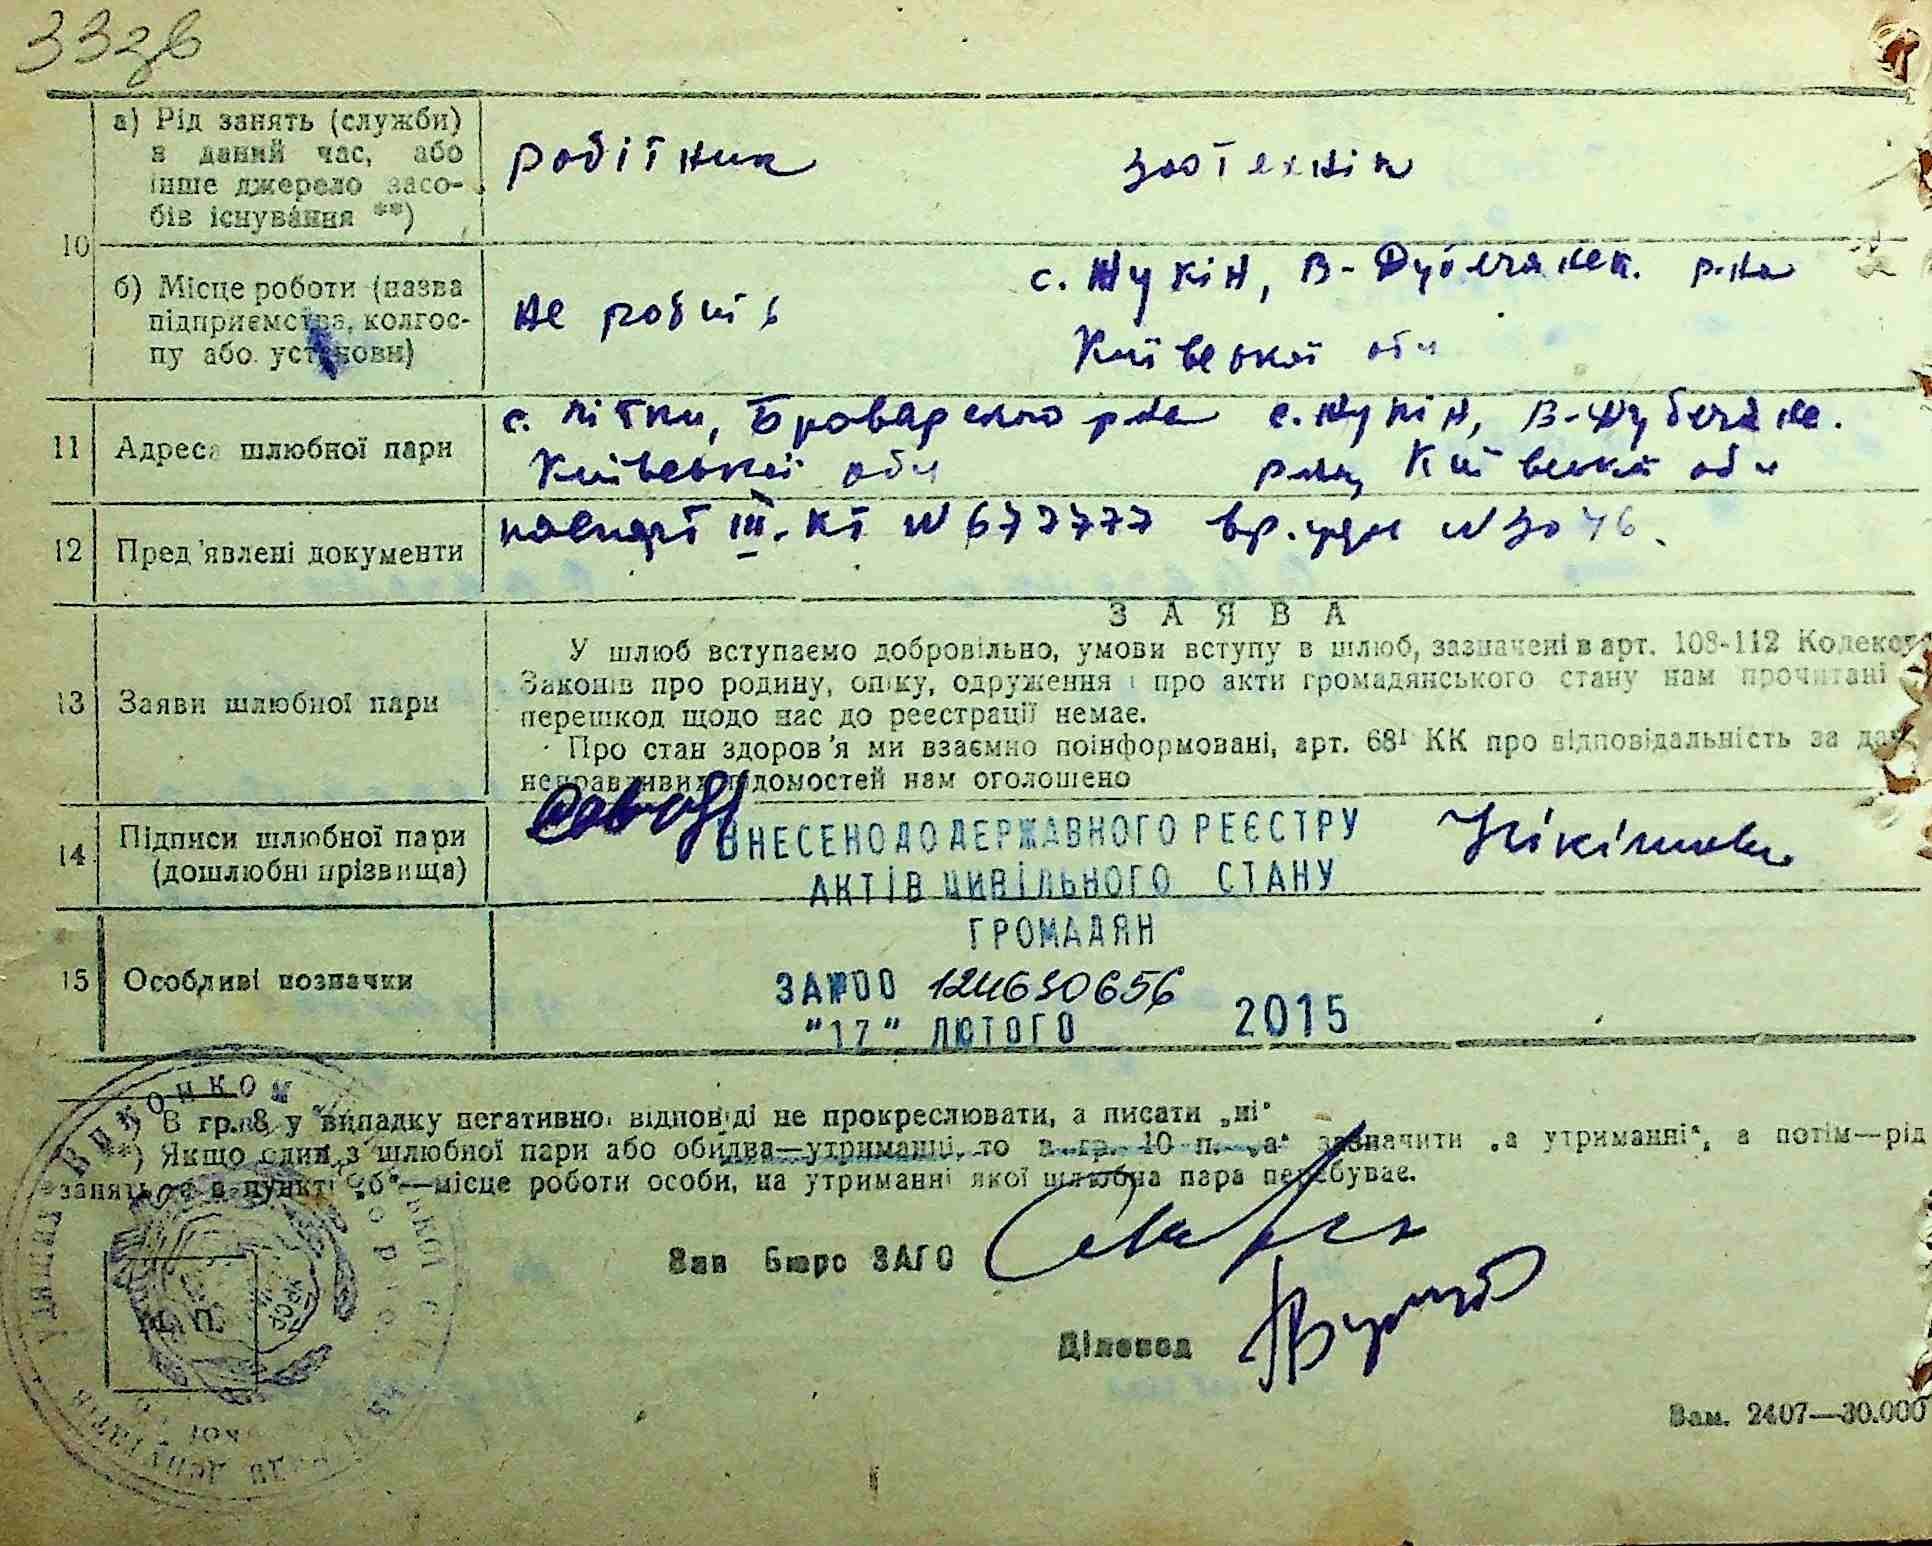 33зв
10
а) Рід занять (служби)
в даний час, або
інше джерело засо-
бів існування **)
робітник
зоотехнік
б) Місце роботи (назва
підприємства, колгос-
пу або установи)
не робив
с. Жукін, В-Дубечанськ. р-на
Київської обл
11
Адреса шлюбної пари
с. Літки, Броварського р-на
Київської обл
с. Жукін, В-Дубечанс.
р-на, Київської обл
12
Пред'явлені документи
паспорт III-КТ № 677777
вр. удн № 3076.
13
Заяви шлюбної пари
ЗАЯВА
У шлюб вступаємо добровільно, умови вступу в шлюб, зазначені в арт. 108-112 Кодексу
Законів про родину, опіку, одруження і про акти громадянського стану нам прочитані
перешкод щодо нас до реєстрації немає.
Про стан здоров'я ми взаємно поінформовані, арт. 68¹ КК про відповідальність за
неправдивих відомостей нам оголошено
14
Підписи шлюбної пари
(дошлюбні прізвища)
ВНЕСЕНО ДО ДЕРЖАВНОГО РЕЄСТРУ
АКТІВ ЦИВІЛЬНОГО СТАНУ
ГРОМАДЯН
ЗА №00 124630656
"17" ЛЮТОГО 2015
15
Особливі позначки
В гр. 8 у випадку негативної відповіді не прокреслювати, а писати „ні"
**) Якщо один з шлюбної пари або обидва—утриманці, то в гр. 10 п. „а" зазначити „а утриманні", а потім—рід
занять, а в пункті „б"—місце роботи особи, на утриманні якої шлюбна пара перебуває.
Зав Бюро ЗАГС
Діловод
М. П.
Зам. 2407—30.000